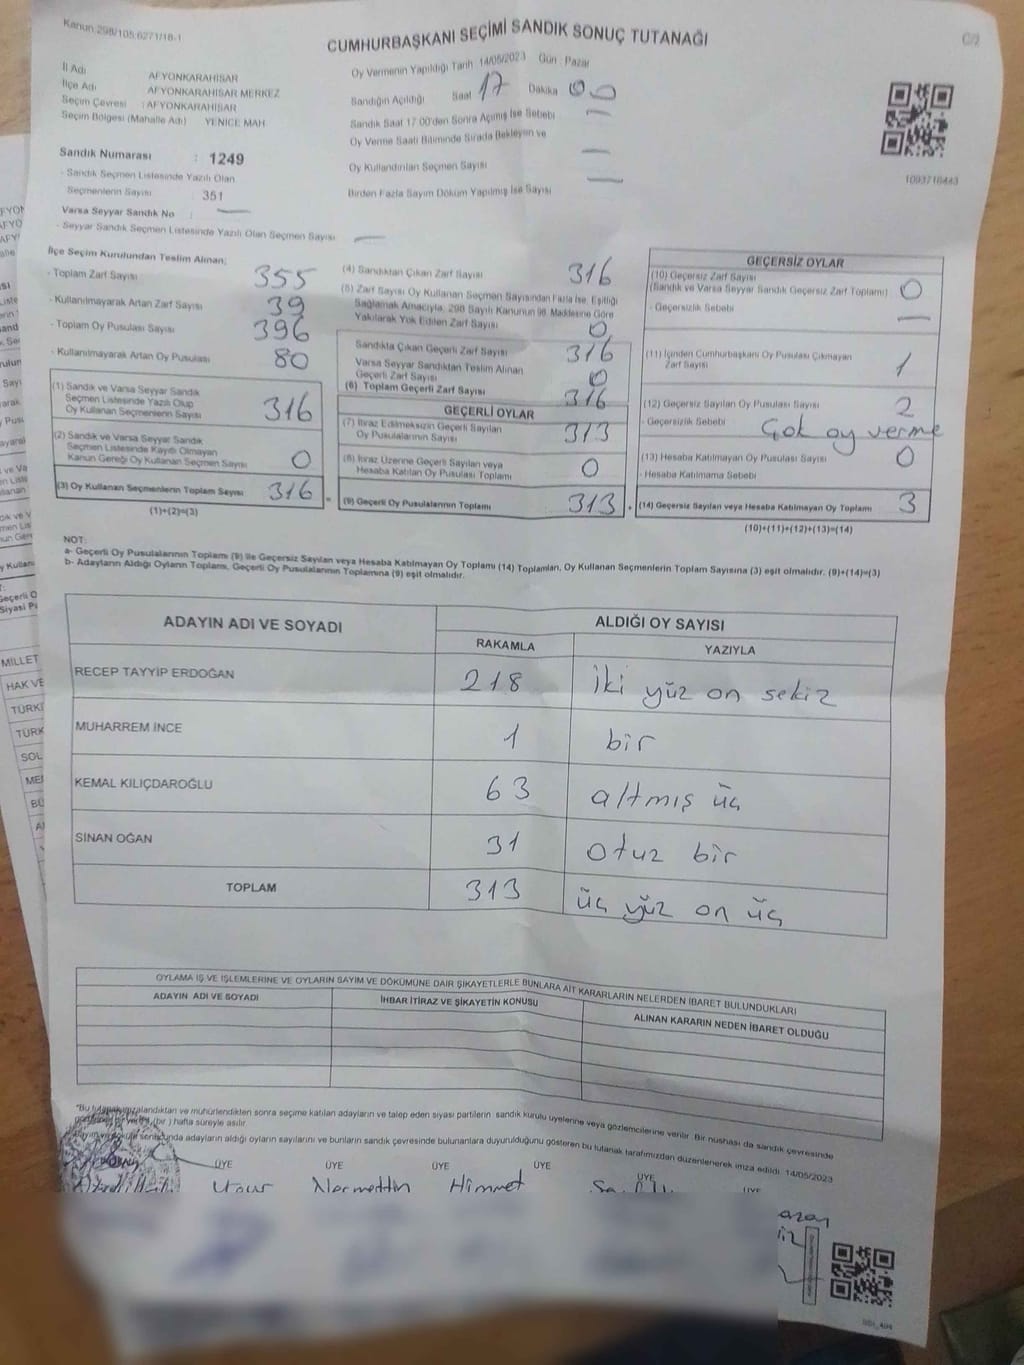 Kanun:298/105;6271/18-1
CUMHURBAŞKANI SEÇİMİ SANDIK SONUÇ TUTANAĞI
C/2
İl Adı AFYONKARAHİSAR
İlçe Adı AFYONKARAHİSAR MERKEZ
Seçim Çevresi : AFYONKARAHİSAR
Seçim Bölgesi (Mahalle Adı) YENİCE MAH
Sandık Numarası : 1249
- Sandık Seçmen Listesinde Yazılı Olan
Seçmenlerin Sayısı : 351
Varsa Seyyar Sandık No : —
- Seyyar Sandık Seçmen Listesinde Yazılı Olan Seçmen Sayısı —
Oy Vermenin Yapıldığı Tarih 14/05/2023 Gün : Pazar
Sandığın Açıldığı Saat 17 Dakika 00
Sandık Saat 17:00'den Sonra Açılmış İse Sebebi —
Oy Verme Saati Bitiminde Sırada Bekleyen ve
Oy Kullandırılan Seçmen Sayısı —
Birden Fazla Sayım Döküm Yapılmış İse Sayısı —
1093716443
İlçe Seçim Kurulundan Teslim Alınan;
- Toplam Zarf Sayısı 355
- Kullanılmayarak Artan Zarf Sayısı 39
- Toplam Oy Pusulası Sayısı 396
- Kullanılmayarak Artan Oy Pusulası 80
(1) Sandık ve Varsa Seyyar Sandık
Seçmen Listesinde Yazılı Olup
Oy Kullanan Seçmenlerin Sayısı 316
(2) Sandık ve Varsa Seyyar Sandık
Seçmen Listesinde Kayıtlı Olmayan
Kanun Gereği Oy Kullanan Seçmen Sayısı 0
(3) Oy Kullanan Seçmenlerin Toplam Sayısı 316 =
(1)+(2)=(3)
(4) Sandıktan Çıkan Zarf Sayısı 316
(5) Zarf Sayısı Oy Kullanan Seçmen Sayısından Fazla İse, Eşitliği
Sağlamak Amacıyla; 298 Sayılı Kanunun 98. Maddesine Göre
Yakılarak Yok Edilen Zarf Sayısı 0
Sandıkta Çıkan Geçerli Zarf Sayısı 316
Varsa Seyyar Sandıktan Teslim Alınan
Geçerli Zarf Sayısı 0
(6) Toplam Geçerli Zarf Sayısı 316
GEÇERLİ OYLAR
(7) İtiraz Edilmeksizin Geçerli Sayılan
Oy Pusulalarının Sayısı 313
(8) İtiraz Üzerine Geçerli Sayılan veya
Hesaba Katılan Oy Pusulası Toplamı 0
(9) Geçerli Oy Pusulalarının Toplamı 313 +
GEÇERSİZ OYLAR
(10) Geçersiz Zarf Sayısı
(Sandık ve Varsa Seyyar Sandık Geçersiz Zarf Toplamı) 0
- Geçersizlik Sebebi —
(11) İçinden Cumhurbaşkanı Oy Pusulası Çıkmayan
Zarf Sayısı 1
(12) Geçersiz Sayılan Oy Pusulası Sayısı 2
- Geçersizlik Sebebi Çok oy verme
(13) Hesaba Katılmayan Oy Pusulası Sayısı 0
- Hesaba Katılmama Sebebi
(14) Geçersiz Sayılan veya Hesaba Katılmayan Oy Toplamı 3
(10)+(11)+(12)+(13)=(14)
NOT:
a- Geçerli Oy Pusulalarının Toplamı (9) ile Geçersiz Sayılan veya Hesaba Katılmayan Oy Toplamı (14) Toplamları, Oy Kullanan Seçmenlerin Toplam Sayısına (3) eşit olmalıdır. (9)+(14)=(3)
b- Adayların Aldığı Oyların Toplamı, Geçerli Oy Pusulalarının Toplamına (9) eşit olmalıdır.
ADAYIN ADI VE SOYADI ALDIĞI OY SAYISI
RAKAMLA YAZIYLA
RECEP TAYYİP ERDOĞAN 218 iki yüz on sekiz
MUHARREM İNCE 1 bir
KEMAL KILIÇDAROĞLU 63 altmış üç
SİNAN OĞAN 31 otuz bir
TOPLAM 313 üç yüz on üç
OYLAMA İŞ VE İŞLEMLERİNE VE OYLARIN SAYIM VE DÖKÜMÜNE DAİR ŞİKAYETLERLE BUNLARA AİT KARARLARIN NELERDEN İBARET BULUNDUKLARI
ADAYIN ADI VE SOYADI İHBAR İTİRAZ VE ŞİKAYETİN KONUSU ALINAN KARARIN NEDEN İBARET OLDUĞU
imzalandıktan ve mühürlendikten sonra seçime katılan adayların ve talep eden siyasi partilerin sandık kurulu üyelerine veya gözlemcilerine verilir. Bir nüshası da sandık çevresinde
(bir) hafta süreyle asılır.
adayların aldığı oyların sayılarını ve bunların sandık çevresinde bulunanlara duyurulduğunu gösteren bu tutanak tarafımızdan düzenlenerek imza edildi. 14/05/2023
ÜYE ÜYE ÜYE ÜYE ÜYE ÜYE
Himmet